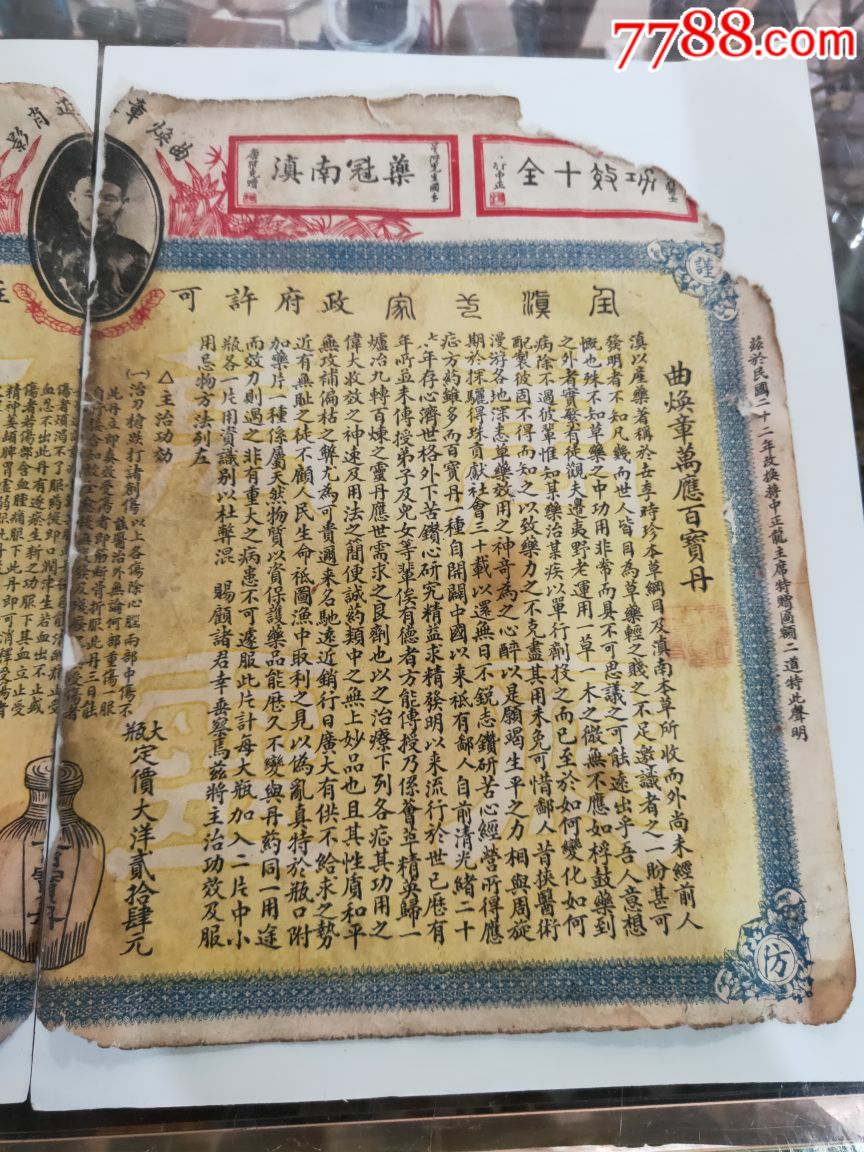 7788.com
曲煥章
肖影
藥冠南滇
功效十全
中正
謹
防
全滇名家政府許可
茲於民國二十二年改換蔣中正龍主席特贈匾額二道特此聲明
曲煥章萬應百寶丹
滇以產藥著稱於世李時珍本草綱目及滇南本草所收而外尚未經前人
發明者不知凡幾而世人皆目為草藥輕之賤之不足邀識者之一盼甚可
慨也殊不知草藥之中功用非常而具不可思議之可能遠出乎吾人意想
之外者實繁有徒觀夫遣夷野老運用一草一木之微無不應如桴鼓藥到
病除不過彼輩惟知某藥治某疾以單行劑投之而已至於如何變化如何
配製彼固不得而知之以致藥力之不克盡其用未免可惜鄙人昔挾醫術
漫游各地深悉草藥效用之神奇為之心醉以是願竭生平之力相與周旋
期於探驪得珠貢獻社會三十載以還無日不銳志鑽研苦心經營所得應
症方藥雖多而百寶丹一種自開闢中國以來祗有鄙人自前清光緒二十
六年存心濟世格外下苦鑽心研究精益求精發明以來流行於世已歷有
年所並未傳授弟子及兒女等輩俟有德者方能傳授乃係薈草精英歸一
爐冶九轉百煉之靈丹應世需求之良劑也以之治療下列各症其功用之
偉大收效之神速及用法之簡便誠藥類中之無上妙品也且其性質和平
無攻補偏枯之弊尤為可貴邇來名馳遠近銷行日廣大有供不給求之勢
近有無恥之徒不顧人民生命祗圖漁中取利之見以偽亂真特於瓶口附
加藥片一種係屬天然物質以資保護藥品能歷久不變與丹藥同一用途
而效力則過之非有重大之病患不可遽服此片計每大瓶加入二片中小
瓶各一片用資識別以杜弊混 賜顧諸君幸垂鑒焉茲將主治功效及服
用忌物方法列左
△主治功効
(一)治刀槍跌打諸創傷 以上各傷除心腦兩部中傷不
能醫治外無論何部重傷一服
此丹立即奏效受傷者即筋斷骨折服此丹三日能
大瓶定價大洋貳拾肆元
傷者煩渴不了服藥後即口潤津生若血出不止或
血忍不出此丹有逐瘀生新之功服下其血立止受
傷者若傷架含血腫痛服下此丹即可消釋受傷者
百寶丹